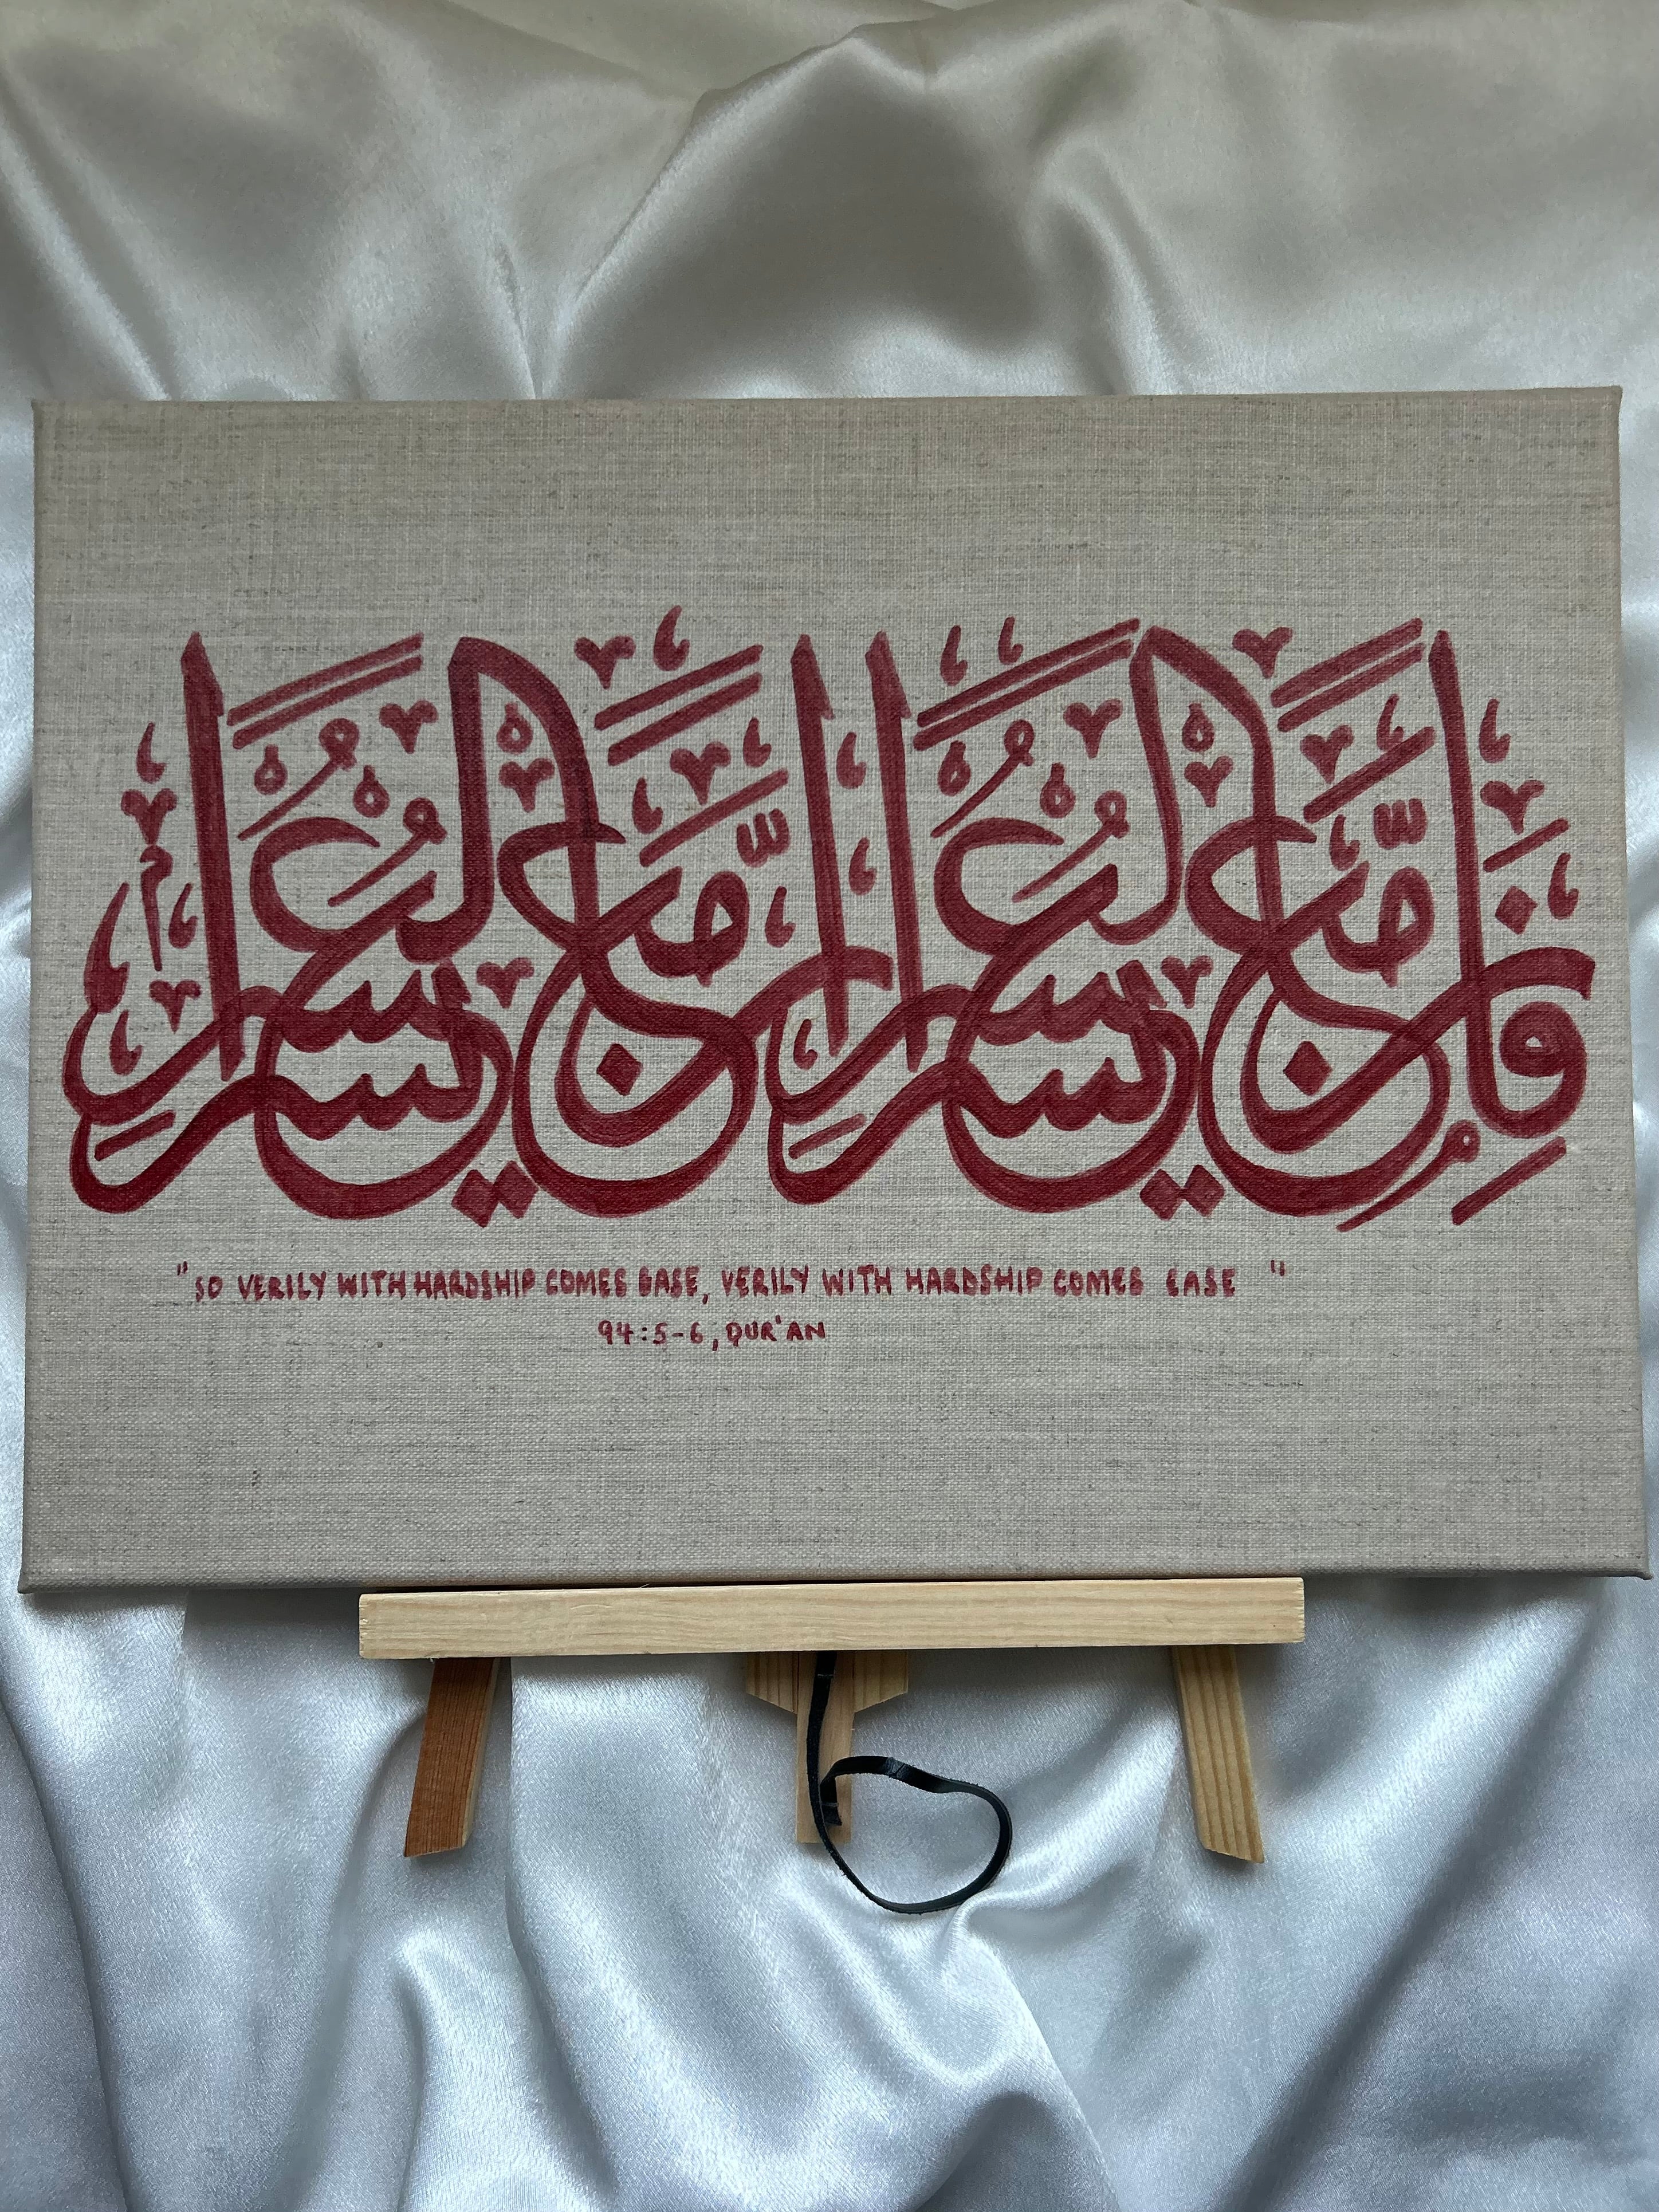 فَإِنَّ مَعَ الْعُسْرِ يُسْرًا إِنَّ مَعَ الْعُسْرِ يُسْرًا
"SO VERILY WITH HARDSHIP COMES EASE, VERILY WITH HARDSHIP COMES EASE"
94:5-6, QUR'AN